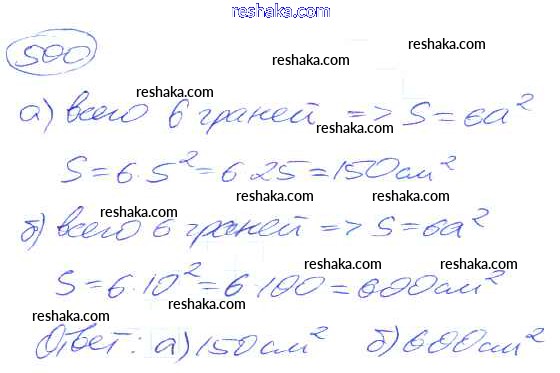 reshaka.com
500
reshaka.com
reshaka.com
reshaka.com
а) всего 6 граней => S = 6a²
reshaka.com
S = 6·5² = 6·25 = 150 см²
reshaka.com
reshaka.com
reshaka.com
б) всего 6 граней => S = 6a²
reshaka.com
reshaka.com
S = 6·10² = 6·100 = 600 см²
reshaka.com
reshaka.com
reshaka.com
Ответ: а) 150 см² б) 600 см²
reshaka.com